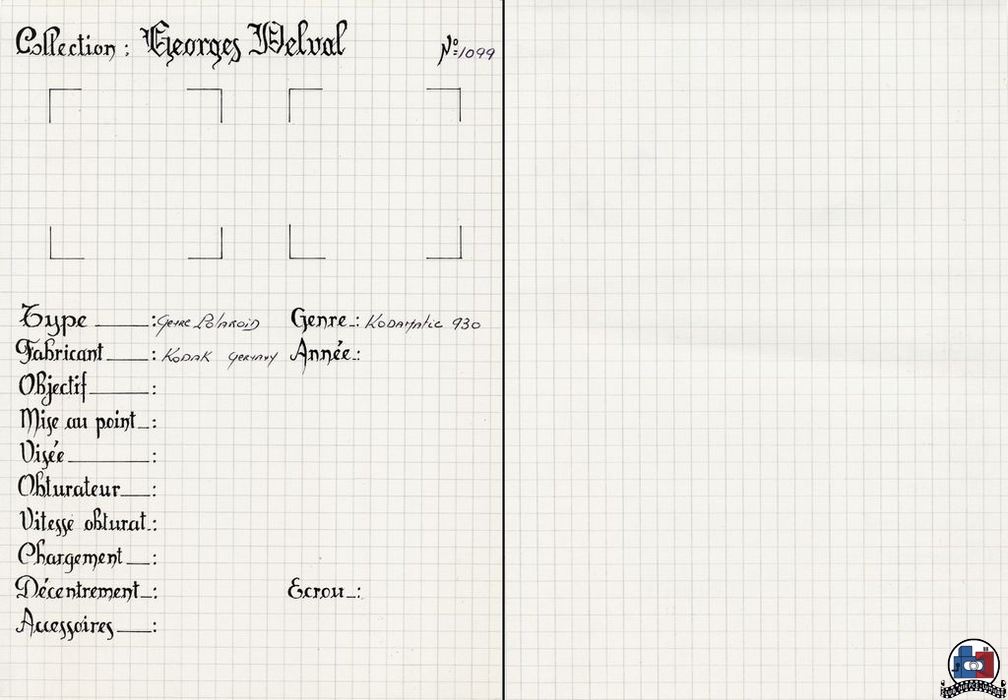 Collection : Georges Delval N°: 1099
Type : Genre Polaroid Genre : Kodamatic 930
Fabricant : Kodak Germany Année :
Objectif :
Mise au point :
Visée :
Obturateur :
Vitesse obturat. :
Chargement :
Décentrement : Ecrou :
Accessoires :